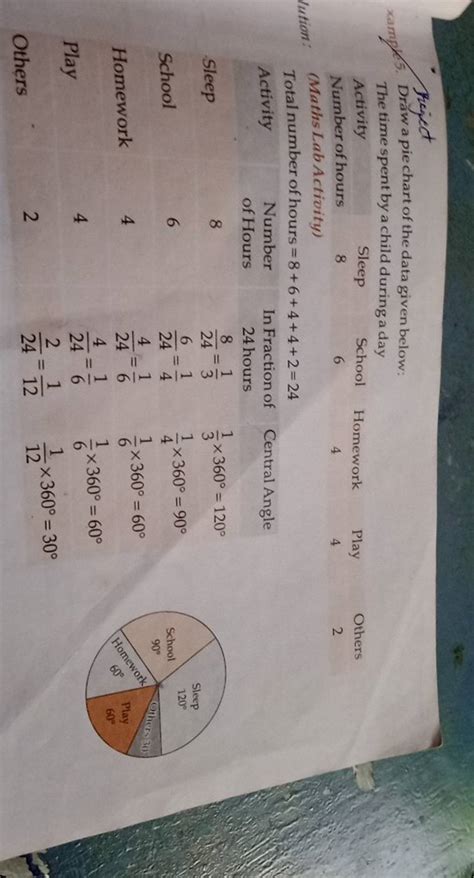 Project
xample 5. Draw a pie chart of the data given below:
The time spent by a child during a day
Activity Sleep School Homework Play Others
Number of hours 8 6 4 4 2
lution: (Maths Lab Activity)
Total number of hours = 8 + 6 + 4 + 4 + 2 = 24
Activity Number of Hours In Fraction of 24 hours Central Angle
Sleep 8 8/24 = 1/3 1/3 × 360° = 120°
School 6 6/24 = 1/4 1/4 × 360° = 90°
Homework 4 4/24 = 1/6 1/6 × 360° = 60°
Play 4 4/24 = 1/6 1/6 × 360° = 60°
Others 2 2/24 = 1/12 1/12 × 360° = 30°
Sleep
120°
School
90°
Others 30°
Homework
60°
Play
60°